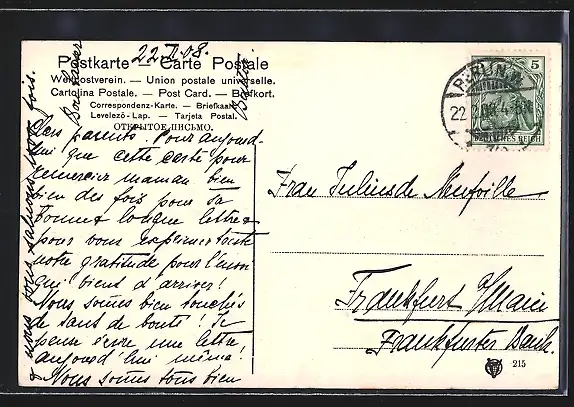 22.V.08.
Postkarte — Carte Postale
Weltpostverein. — Union postale universelle.
Cartolina Postale. — Post Card. — Briefkort.
Correspondenz-Karte. — Briefkaart.
Levelező-Lap. — Tarjeta Postal.
ОТКРЫТОЕ ПИСЬМО.
Chers parents. Pour aujourd-
hui que cette carte pour
remercier maman bien
bien des fois pour sa
bonne & longue lettre &
pour vous exprimer toute
notre gratitude pour l'envoi
qui vient d'arriver!
Nous somes bien touchés
de tant de bonté! Je
pense écrire une lettre,
aujourd'hui même!
Nous somes tous bien
& vous saluons fois.
5
DEUTSCHES REICH
BERLIN
22
Frau Julius de Neufville
Frankfurt Main
Frankfurter Bank.
215